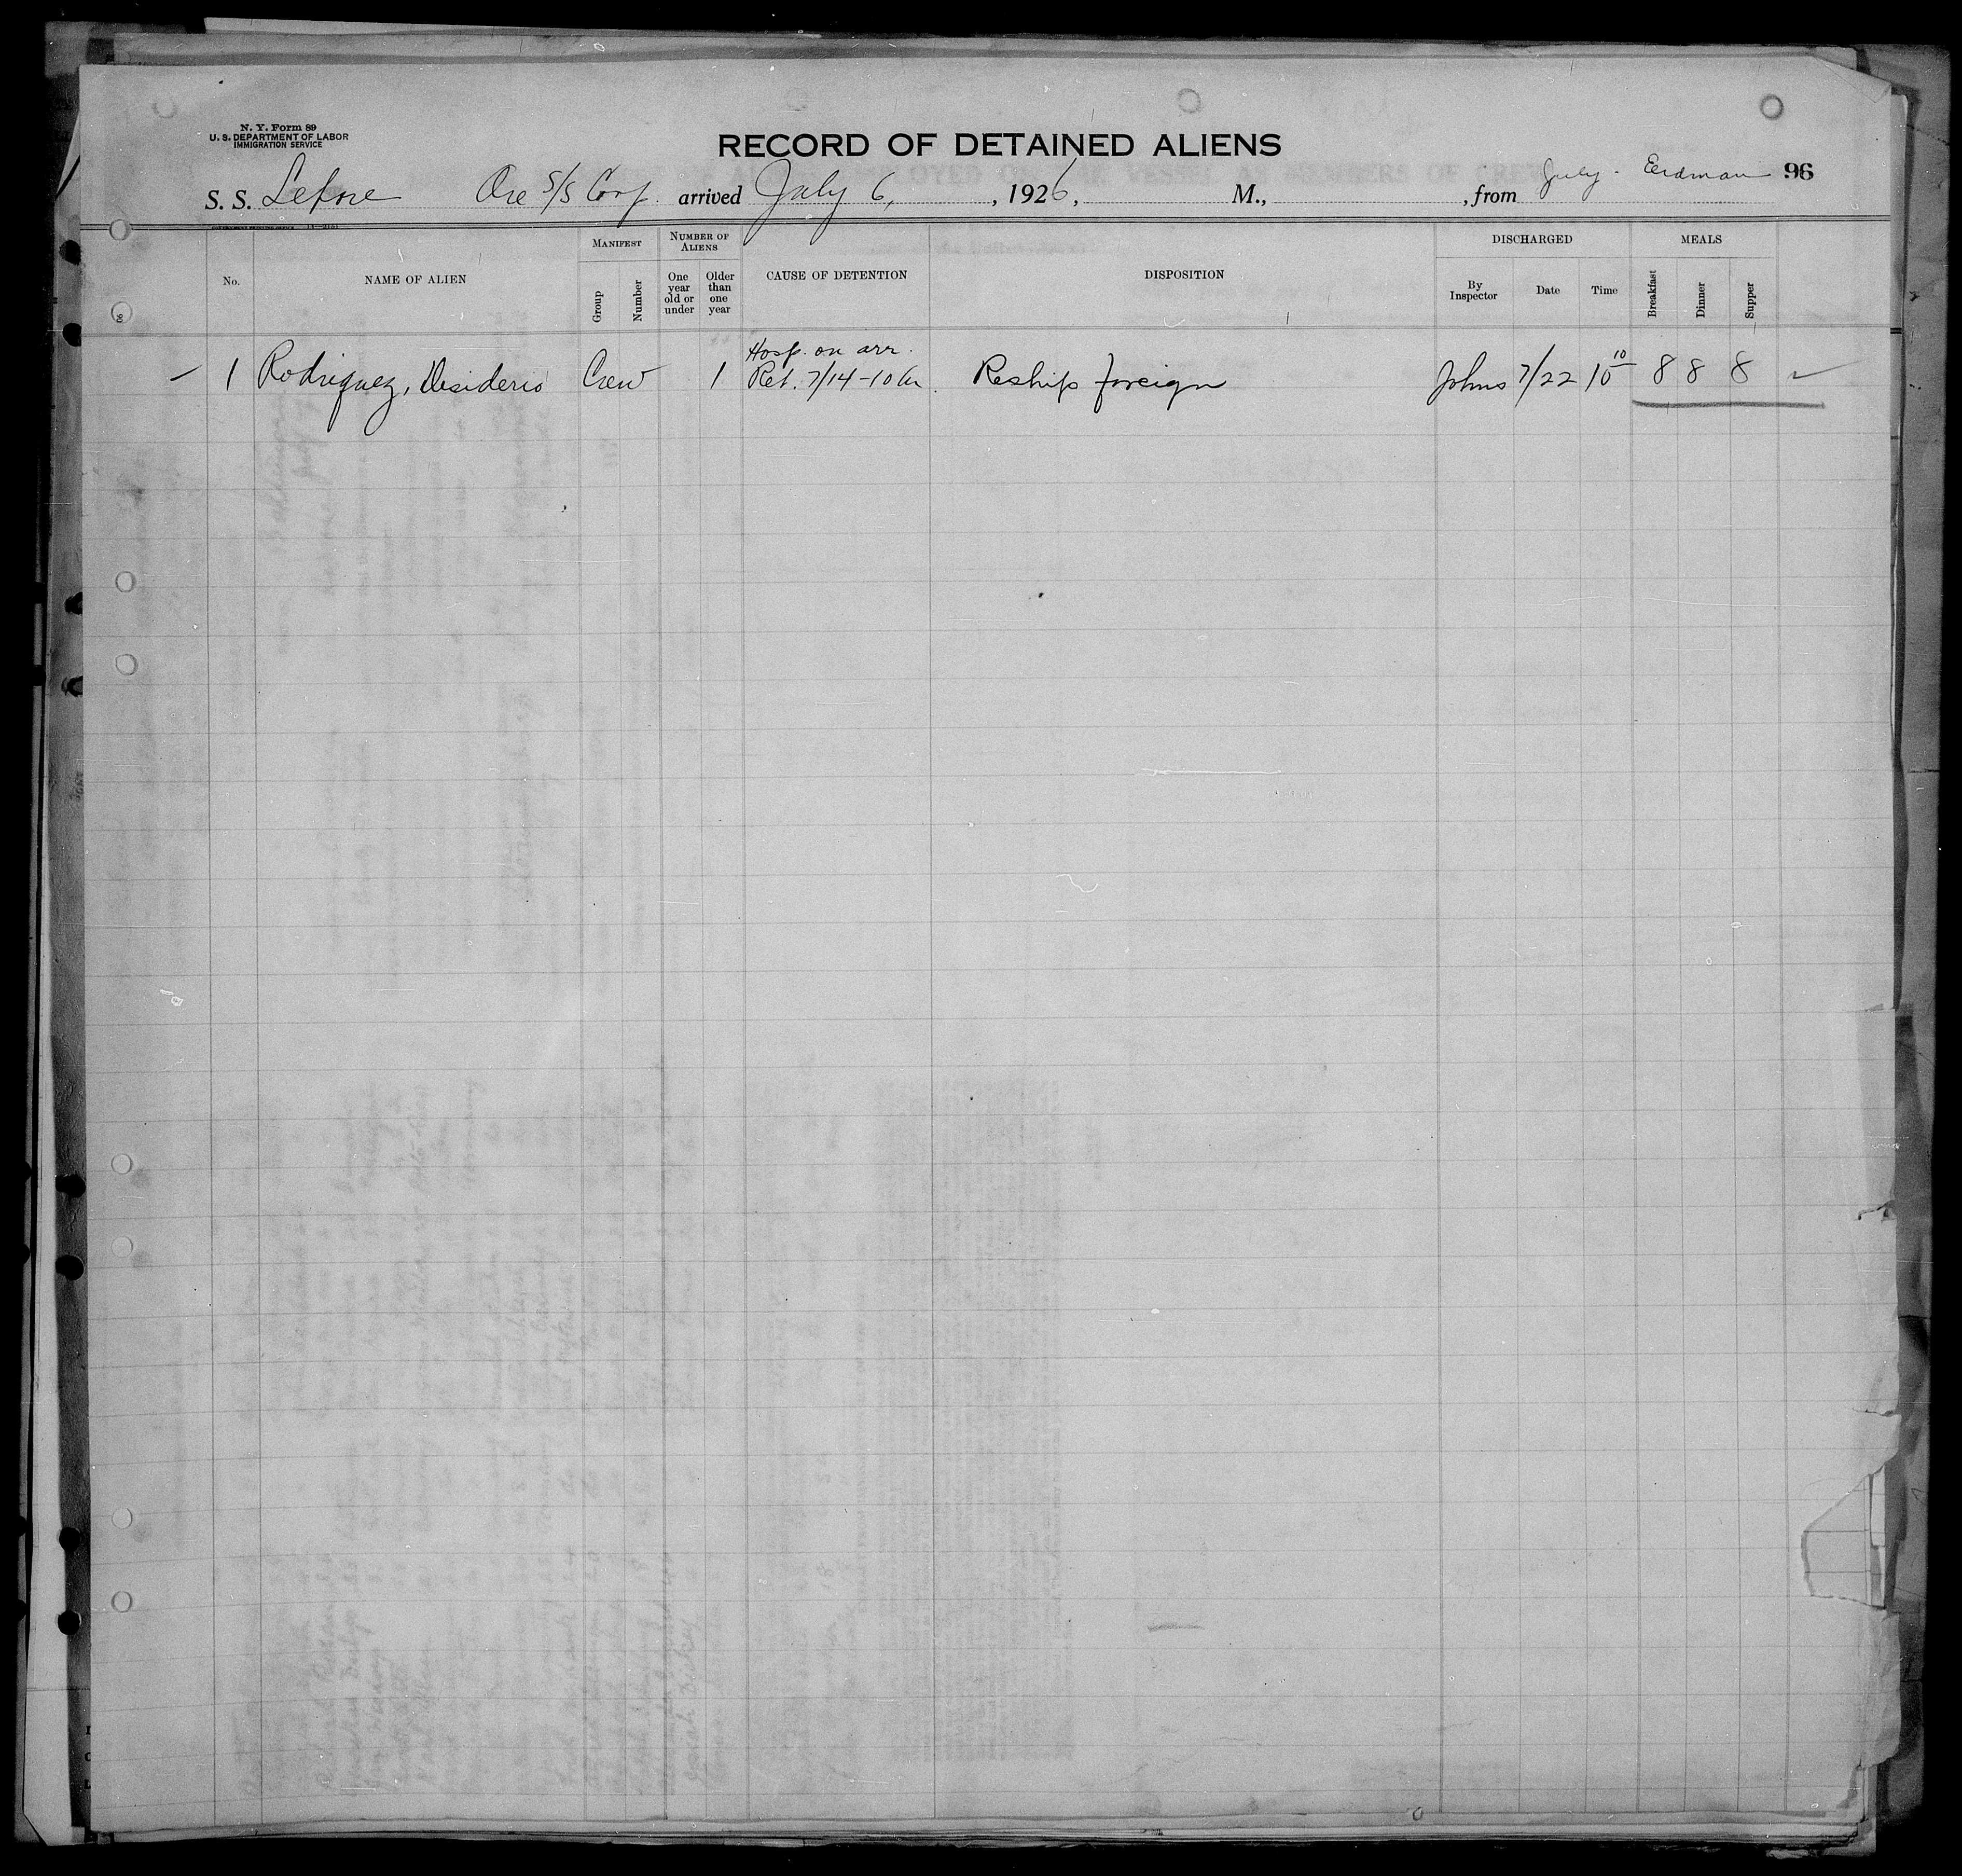 N. Y. Form 89
U. S. DEPARTMENT OF LABOR
IMMIGRATION SERVICE
RECORD OF DETAINED ALIENS
96
S. S. Lefore Ore S/S Corp. arrived July 6, , 1926, M., , from Erdman
No.
NAME OF ALIEN
MANIFEST
Group
Number
NUMBER OF ALIENS
One year old or under
Older than one year
CAUSE OF DETENTION
DISPOSITION
DISCHARGED
By Inspector
Date
Time
MEALS
Breakfast
Dinner
Supper
Hosp. on arr.
1 Rodriguez, Desiderio Crew 1 Ret. 7/14 - 10 Am. Reship foreign Johns 7/22 10 10 8 8 8